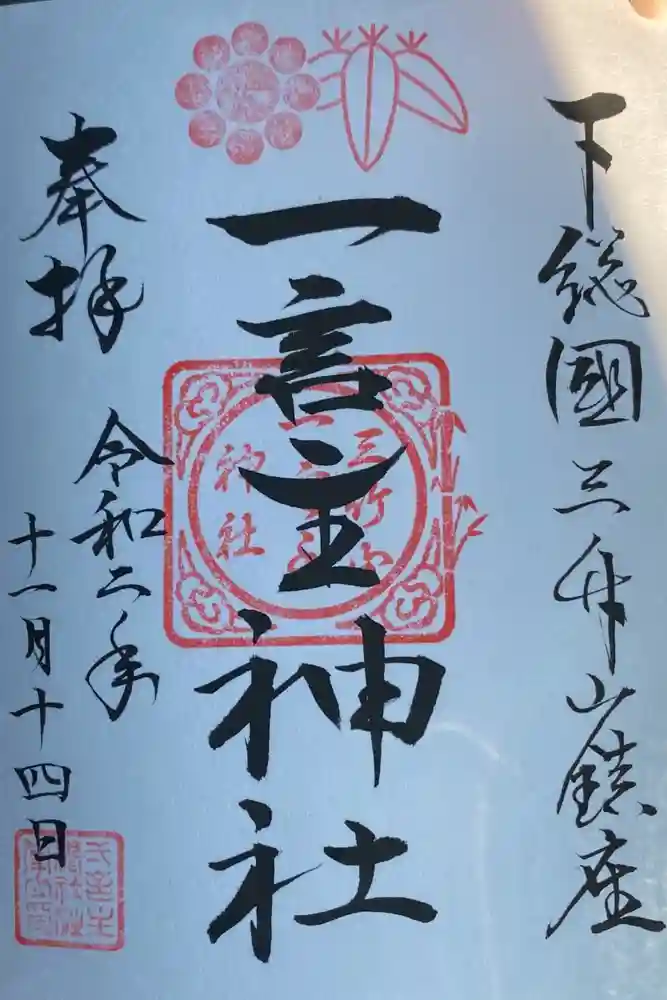 下総國三竹山鎮座
一言主神社
三竹山
一言主
神社
奉拝
令和二年
十一月十四日